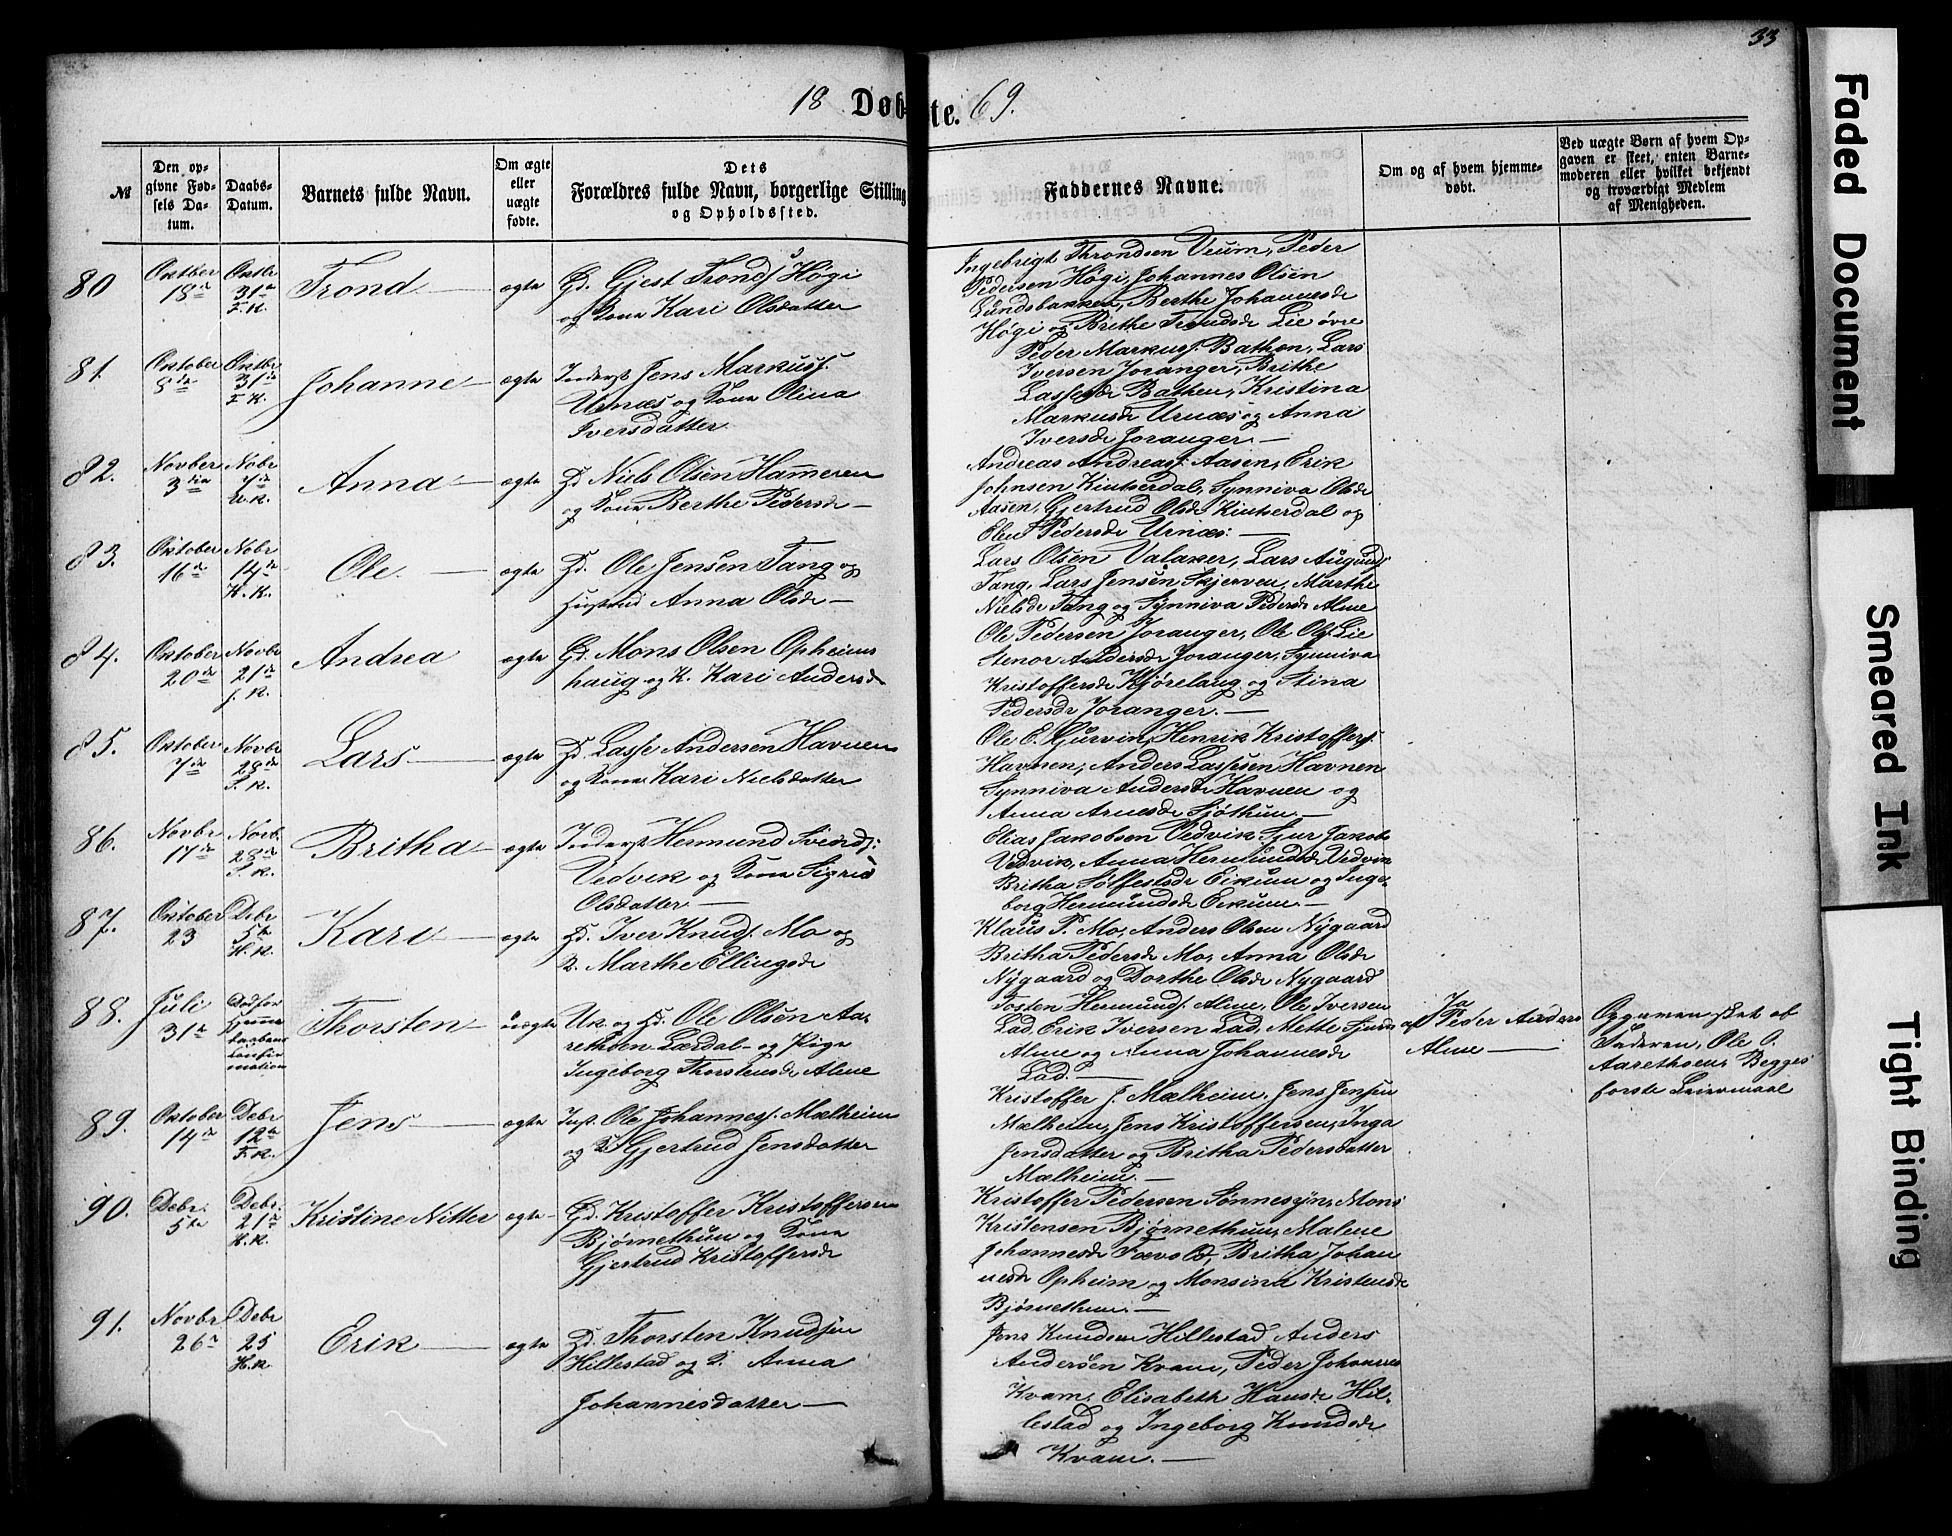 33
18 Døbte. 69.
№
Den opgivne Fødsels Datum.
Daabs-Datum.
Barnets fulde Navn.
Om ægte eller uægte fødte.
Dets Forældres fulde Navn, borgerlige Stilling og Opholdssted.
Faddernes Navne.
Om og af hvem hjemmedøbt.
Ved uægte Børn af hvem Opgaven er skeet, enten Barnemoderen eller hvilket bekjendt og troværdigt Medlem af Menigheden.
80 Oktber 18de Oktbr 31te F. K. Trond ægte Gd. Gjest Tronds. Høgi
og Kone Kari Olsdatter
Ingebrigt Throndsen Veum, Peder
Pedersen Høgi, Johannes Olsen
Lundsbakken, Berthe Johannesdr
Høgi og Brithe Trondsdr Lie øvre
81. Oktober 8de Oktbr 31te F. K. Johanne ægte Inderst Jens Markuss.
Urnæs og Kone Olina
Iversdatter
Peder Markuss. Bathen, Lars
Iversen Joranger, Brithe
Lassesdr Bathen, Kristina
Markusdr Urnæs og Anna
Iversdr Joranger.
82. Novber 3die Nobr 7de U. K. Anna ægte Gd Niels Olsen Hammeren
og Kone Berthe Pedersdr
Andreas Andreass. Aasen, Erik
Johnsen Kinserdal, Synniva Olsdr
Aasen, Gjertrud Olsdr Kinserdal og
Olen Pedersdr Urnæs.
83. Oktober 16de Nobr 14de H. K. Ole ægte Gd. Ole Jensen Tang og
Hustrud Anna Olsdr
Lars Olsen Valaker, Lars Augunds.
Tang, Lars Jensen Skjerven, Marthe
Nielsdr Tang og Synniva Pedersdr Alme
84. Oktober 20de Novbr 21de J. K. Andrea ægte Gd. Mons Olsen Opheims
haug og K. Kari Andersdr
Ole Pedersen Joranger, Ole Ols. Lie
Stenor Andersdr Joranger, Synniva
Kristoffersdr Kjørelaug og Stina
Pedersdr Joranger.
85. Oktober 7de Novbr 28de S. K. Lars ægte Gd. Lasse Andersen Havnen
og Kone Kari Nielsdatter
Ole E. Hjurvin, Henrik Kristoffers.
Havnen, Anders Lassesen Havnen
Synniva Andersdr Havnen og
Anna Arnesdr Sjøthun
86. Novbr 17de Novb. 28de S. K. Britha ægte Inderst Hermund Svends:
Vedvik og Kone Sigrid
Olsdatter
Elias Jakobsen Vedvik, Sjur Jakobs
Vedvik, Anna Hermundsdr Vedvik
Britha Sølfestsdr Eikum og Inge-
borg Hermundsdr Eikum
87. Oktober 23 Debr 5te H. K. Kari ægte Gd. Iver Knuds. Mo og
K. Marthe Ellingsdr
Klaus P. Mo, Anders Olsen Nygaard
Britha Pedersdr Mo, Anna Olsdr
Nygaard og Dorthe Olsdr Nygaard
88. Juli 31te Død før Hjemme daabens Konfirmation Thorsten uægte Uk. og Gd. Ole Olsen Aa-
rethoen Lærdal og Pige
Ingeborg Thorstensdr Alme
Tosten Hermunds. Alme, Ole Iversen
Lad, Erik Iversen Lad, Mette Sjursdr
Alme og Anna Johannesdr
Lad.
Ja
af Peder Anders
Alme
Opgaven skeet af
Faderen, Ole O.
Aarethoen, Begges
første Leiermaal
89. Oktober 14de Debr 12te F. K. Jens ægte Insp. Ole Johanness. Mælheim
og K. Gjertrud Jensdatter
Kristoffer J. Mælheim, Jens Jensen
Mælheim, Jens Kristoffersen, Inga
Jensdatter og Britha Pedersdatter
Mælheim.
90. Debr. 5te Debr. 21de H. K. Kristine Nitter ægte Gd. Kristoffer Kristoffersen
Bjørnethun og Kone
Gjertrud Kristoffersdr
Kristoffer Pedersen Sønnesyn, Mons
Kristensen Bjørnethun, Malene
Johannesdr Fævold, Britha Johan
nesdr Opheim og Monsina Kristensdr
Bjørnethun.
91. Novbr 26de Debr 25 H. K. Erik ægte Gd. Thorsten Knudsen
Hillestad og K. Anna
Johannesdatter
Jens Knudsen Hillestad, Anders
Andersen Kvam, Peder Johannes
Kvam, Elisabeth Hansdr Hil-
lestad og Ingeborg Knudsdr
Kvam.
Faded Document
Smeared Ink
Tight Binding